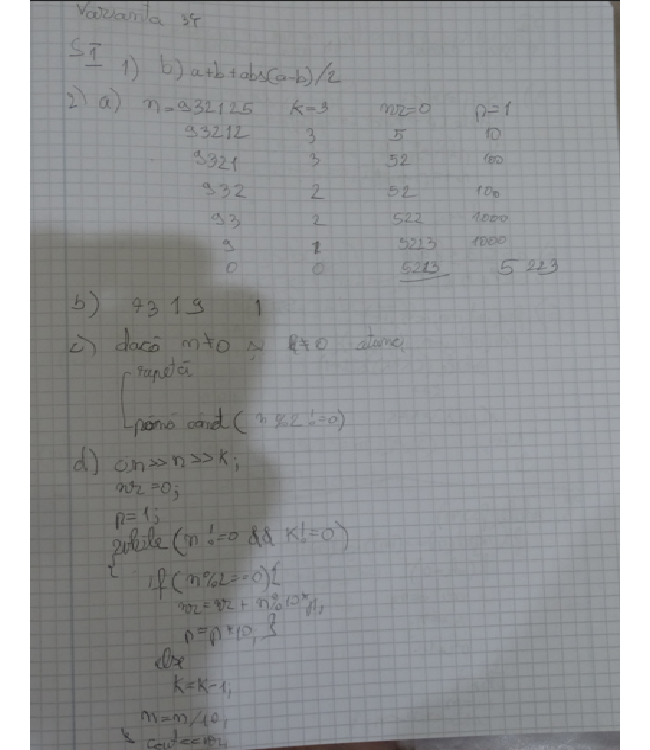 Varianta 34
S I 1) b) a+b+abs(a-b)/2
2) a) n=932125 k=3 nr=0 p=1
93212 3 5 10
9321 3 52 100
932 2 52 100
93 2 522 1000
9 1 5223 1000
0 0 5223 5 223
b) 9319 1
c) dacă n≠0 și k≠0 atunci
repetă
până când (n%2!=0)
d) cin>>n>>k;
nr=0;
p=1;
while(n!=0 && k!=0)
{
if(n%2==0){
nr=nr+n%10*p;
p=p*10; }
else
k=k-1;
n=n/10;
} cout<<nr;